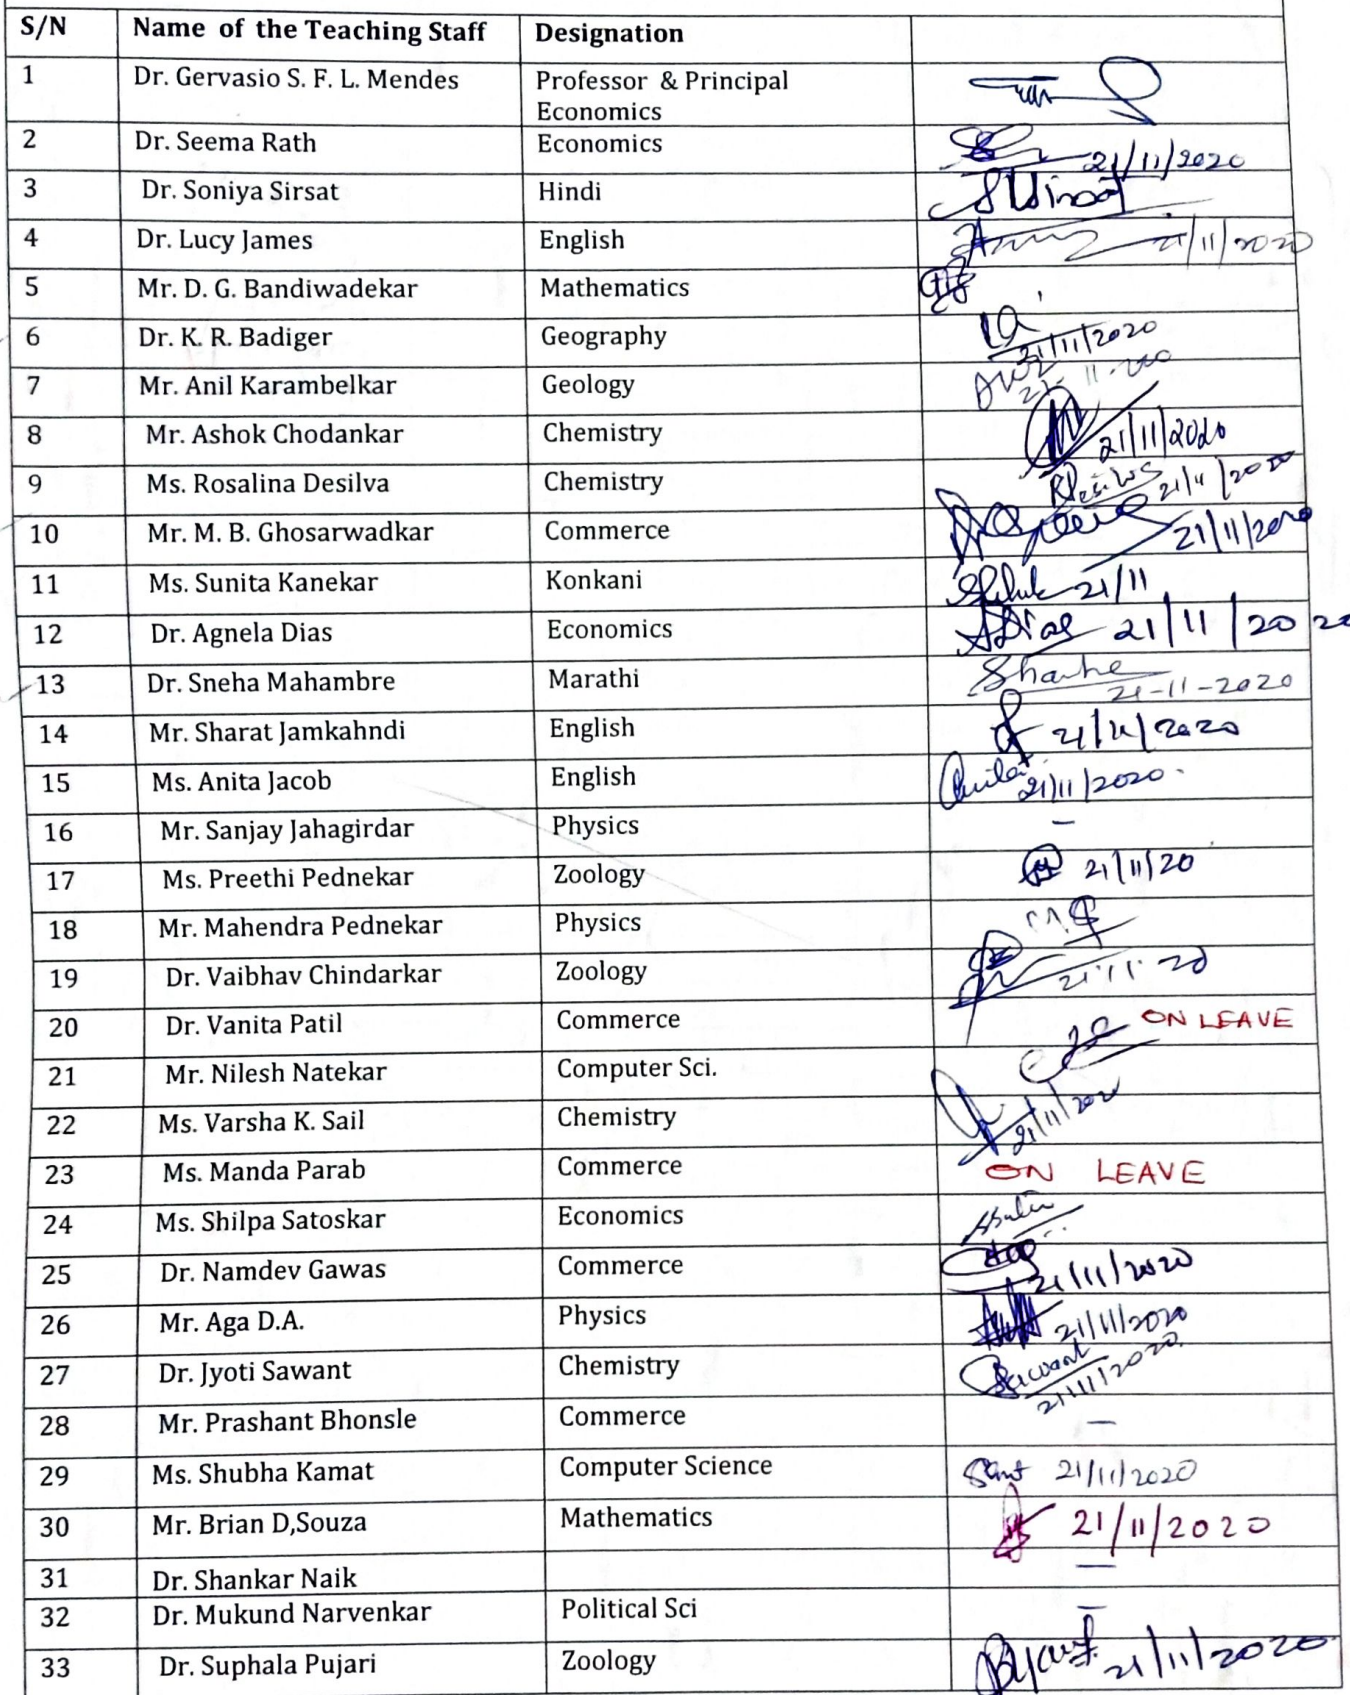 S/N Name of the Teaching Staff Designation
1 Dr. Gervasio S. F. L. Mendes Professor & Principal
Economics
2 Dr. Seema Rath Economics 21/11/2020
3 Dr. Soniya Sirsat Hindi
4 Dr. Lucy James English 21/11/2020
5 Mr. D. G. Bandiwadekar Mathematics
6 Dr. K. R. Badiger Geography 21/11/2020
7 Mr. Anil Karambelkar Geology
8 Mr. Ashok Chodankar Chemistry 21/11/2020
9 Ms. Rosalina Desilva Chemistry 21/11/2020
10 Mr. M. B. Ghosarwadkar Commerce 21/11/2020
11 Ms. Sunita Kanekar Konkani 21/11
12 Dr. Agnela Dias Economics ADias 21/11/2020
13 Dr. Sneha Mahambre Marathi 21-11-2020
14 Mr. Sharat Jamkahndi English 21/11/2020
15 Ms. Anita Jacob English Anita 21/11/2020
16 Mr. Sanjay Jahagirdar Physics –
17 Ms. Preethi Pednekar Zoology 21/11/20
18 Mr. Mahendra Pednekar Physics
19 Dr. Vaibhav Chindarkar Zoology 21.11.20
20 Dr. Vanita Patil Commerce ON LEAVE
21 Mr. Nilesh Natekar Computer Sci.
22 Ms. Varsha K. Sail Chemistry 21/11/2020
23 Ms. Manda Parab Commerce ON LEAVE
24 Ms. Shilpa Satoskar Economics
25 Dr. Namdev Gawas Commerce 21/11/2020
26 Mr. Aga D.A. Physics 21/11/2020
27 Dr. Jyoti Sawant Chemistry Sawant 21/11/2020
28 Mr. Prashant Bhonsle Commerce –
29 Ms. Shubha Kamat Computer Science 21/11/2020
30 Mr. Brian D,Souza Mathematics 21/11/2020
31 Dr. Shankar Naik –
32 Dr. Mukund Narvenkar Political Sci –
33 Dr. Suphala Pujari Zoology 21/11/2020